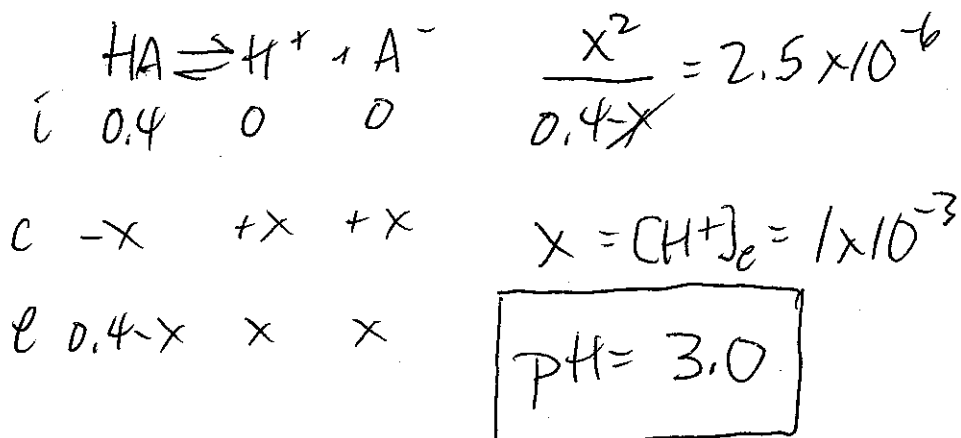 HA ⇌ H⁺ + A⁻
i 0.4 0 0
c -x +x +x
e 0.4-x x x
x² / 0.4-x = 2.5 x10⁻⁶
x = [H+]e = 1x10⁻³
pH= 3.0